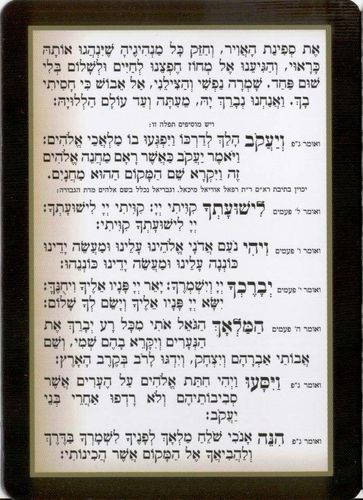 את ספינת האויר, וחזק כל מנהיגיה שינהגו אותה
כראוי, והגיענו אל מחוז חפצנו לחיים ולשלום בלי
שום פחד. שמרה נפשי והצילני, אל אבוש כי חסיתי
בך. ואנחנו נברך יה, מעתה ועד עולם הללויה:
ויש מוסיפים תפלה זו:
ואומר ג"פ וְיַעֲקֹב הָלַךְ לְדַרְכּוֹ וַיִּפְגְּעוּ בוֹ מַלְאֲכֵי אֱלֹהִים:
וַיֹּאמֶר יַעֲקֹב כַּאֲשֶׁר רָאָם מַחֲנֵה אֱלֹהִים
זֶה וַיִּקְרָא שֵׁם הַמָּקוֹם הַהוּא מַחֲנָיִם.
יכוין בתיבת רא"ם ר"ת רפאל אוריאל מיכאל, וגבריאל נכלל בשם אלהים מדת הגבורה:
ואומר ג' פעמים לִישׁוּעָתְךָ קִוִּיתִי יְיָ: קִוִּיתִי יְיָ לִישׁוּעָתְךָ:
יְיָ לִישׁוּעָתְךָ קִוִּיתִי:
ואומר ז' פעמים וִיהִי נֹעַם אֲדֹנָי אֱלֹהֵינוּ עָלֵינוּ וּמַעֲשֵׂה יָדֵינוּ
כּוֹנְנָה עָלֵינוּ וּמַעֲשֵׂה יָדֵינוּ כּוֹנְנֵהוּ:
פעמים יְבָרֶכְךָ יְיָ וְיִשְׁמְרֶךָ: יָאֵר יְיָ פָּנָיו אֵלֶיךָ וִיחֻנֶּךָּ:
יִשָּׂא יְיָ פָּנָיו אֵלֶיךָ וְיָשֵׂם לְךָ שָׁלוֹם:
ואומר ה' פעמים הַמַּלְאָךְ הַגֹּאֵל אֹתִי מִכָּל רָע יְבָרֵךְ אֶת
הַנְּעָרִים וְיִקָּרֵא בָהֶם שְׁמִי, וְשֵׁם
אֲבוֹתַי אַבְרָהָם וְיִצְחָק, וְיִדְגּוּ לָרֹב בְּקֶרֶב הָאָרֶץ:
ואומר ג"פ וַיִּסָּעוּ וַיְהִי חִתַּת אֱלֹהִים עַל הֶעָרִים אֲשֶׁר
סְבִיבוֹתֵיהֶם וְלֹא רָדְפוּ אַחֲרֵי בְּנֵי
יַעֲקֹב:
ואומר ג"פ הִנֵּה אָנֹכִי שֹׁלֵחַ מַלְאָךְ לְפָנֶיךָ לִשְׁמָרְךָ בַּדָּרֶךְ
וְלַהֲבִיאֲךָ אֶל הַמָּקוֹם אֲשֶׁר הֲכִינוֹתִי: